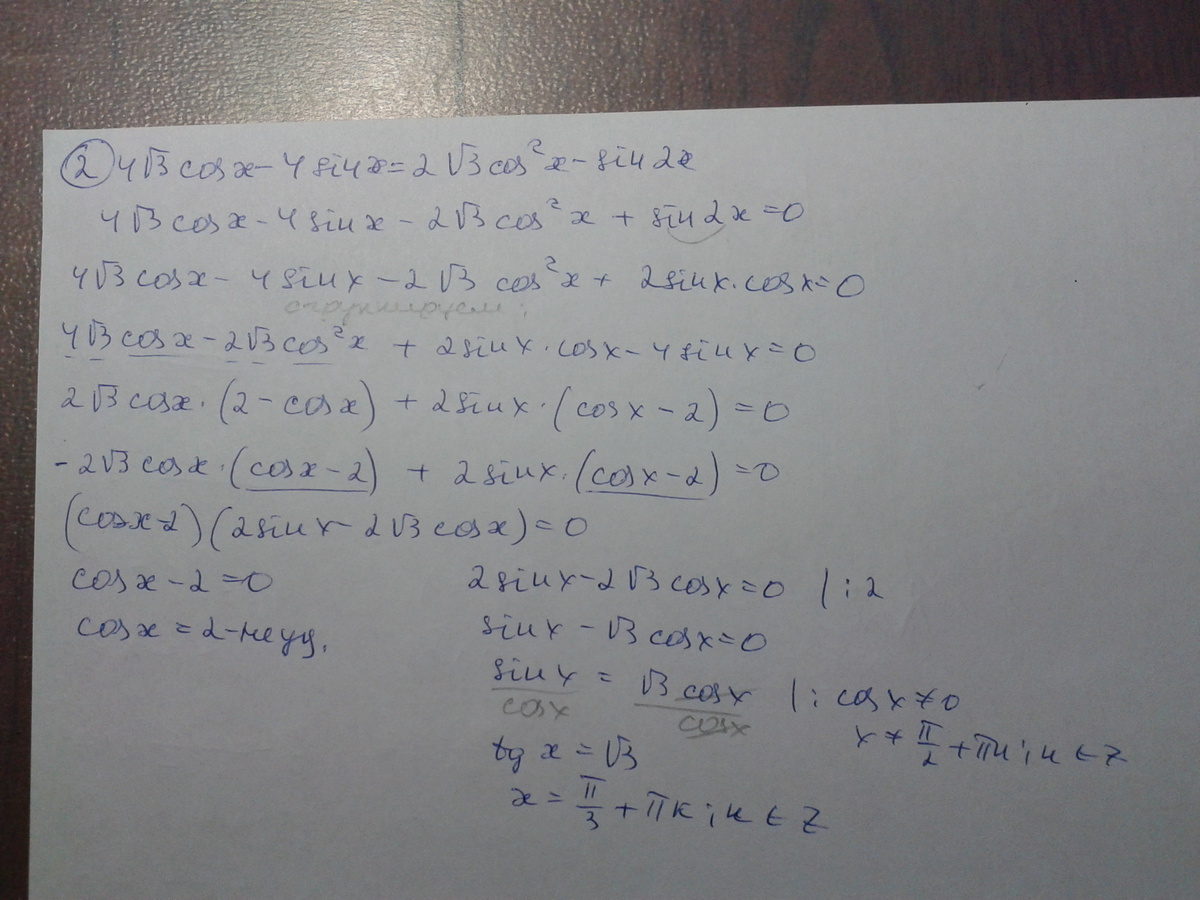 ② 4√3 cosx - 4 sinx = 2√3 cos²x - sin 2x
4√3 cosx - 4 sinx - 2√3 cos²x + sin 2x = 0
4√3 cosx - 4 sinx - 2√3 cos²x + 2sinx·cosx = 0
сгруппируем:
4√3 cosx - 2√3 cos²x + 2sinx·cosx - 4sinx = 0
2√3 cosx·(2 - cosx) + 2sinx·(cosx - 2) = 0
-2√3 cosx·(cosx - 2) + 2sinx·(cosx - 2) = 0
(cosx - 2)(2sinx - 2√3 cosx) = 0
cosx - 2 = 0
cosx = 2 - не уд.
2sinx - 2√3 cosx = 0 | : 2
sinx - √3 cosx = 0
sinx/cosx = √3 cosx/cosx | : cosx ≠ 0
x ≠ π/2 + πn; n ∈ Z
tg x = √3
x = π/3 + πк; к ∈ Z